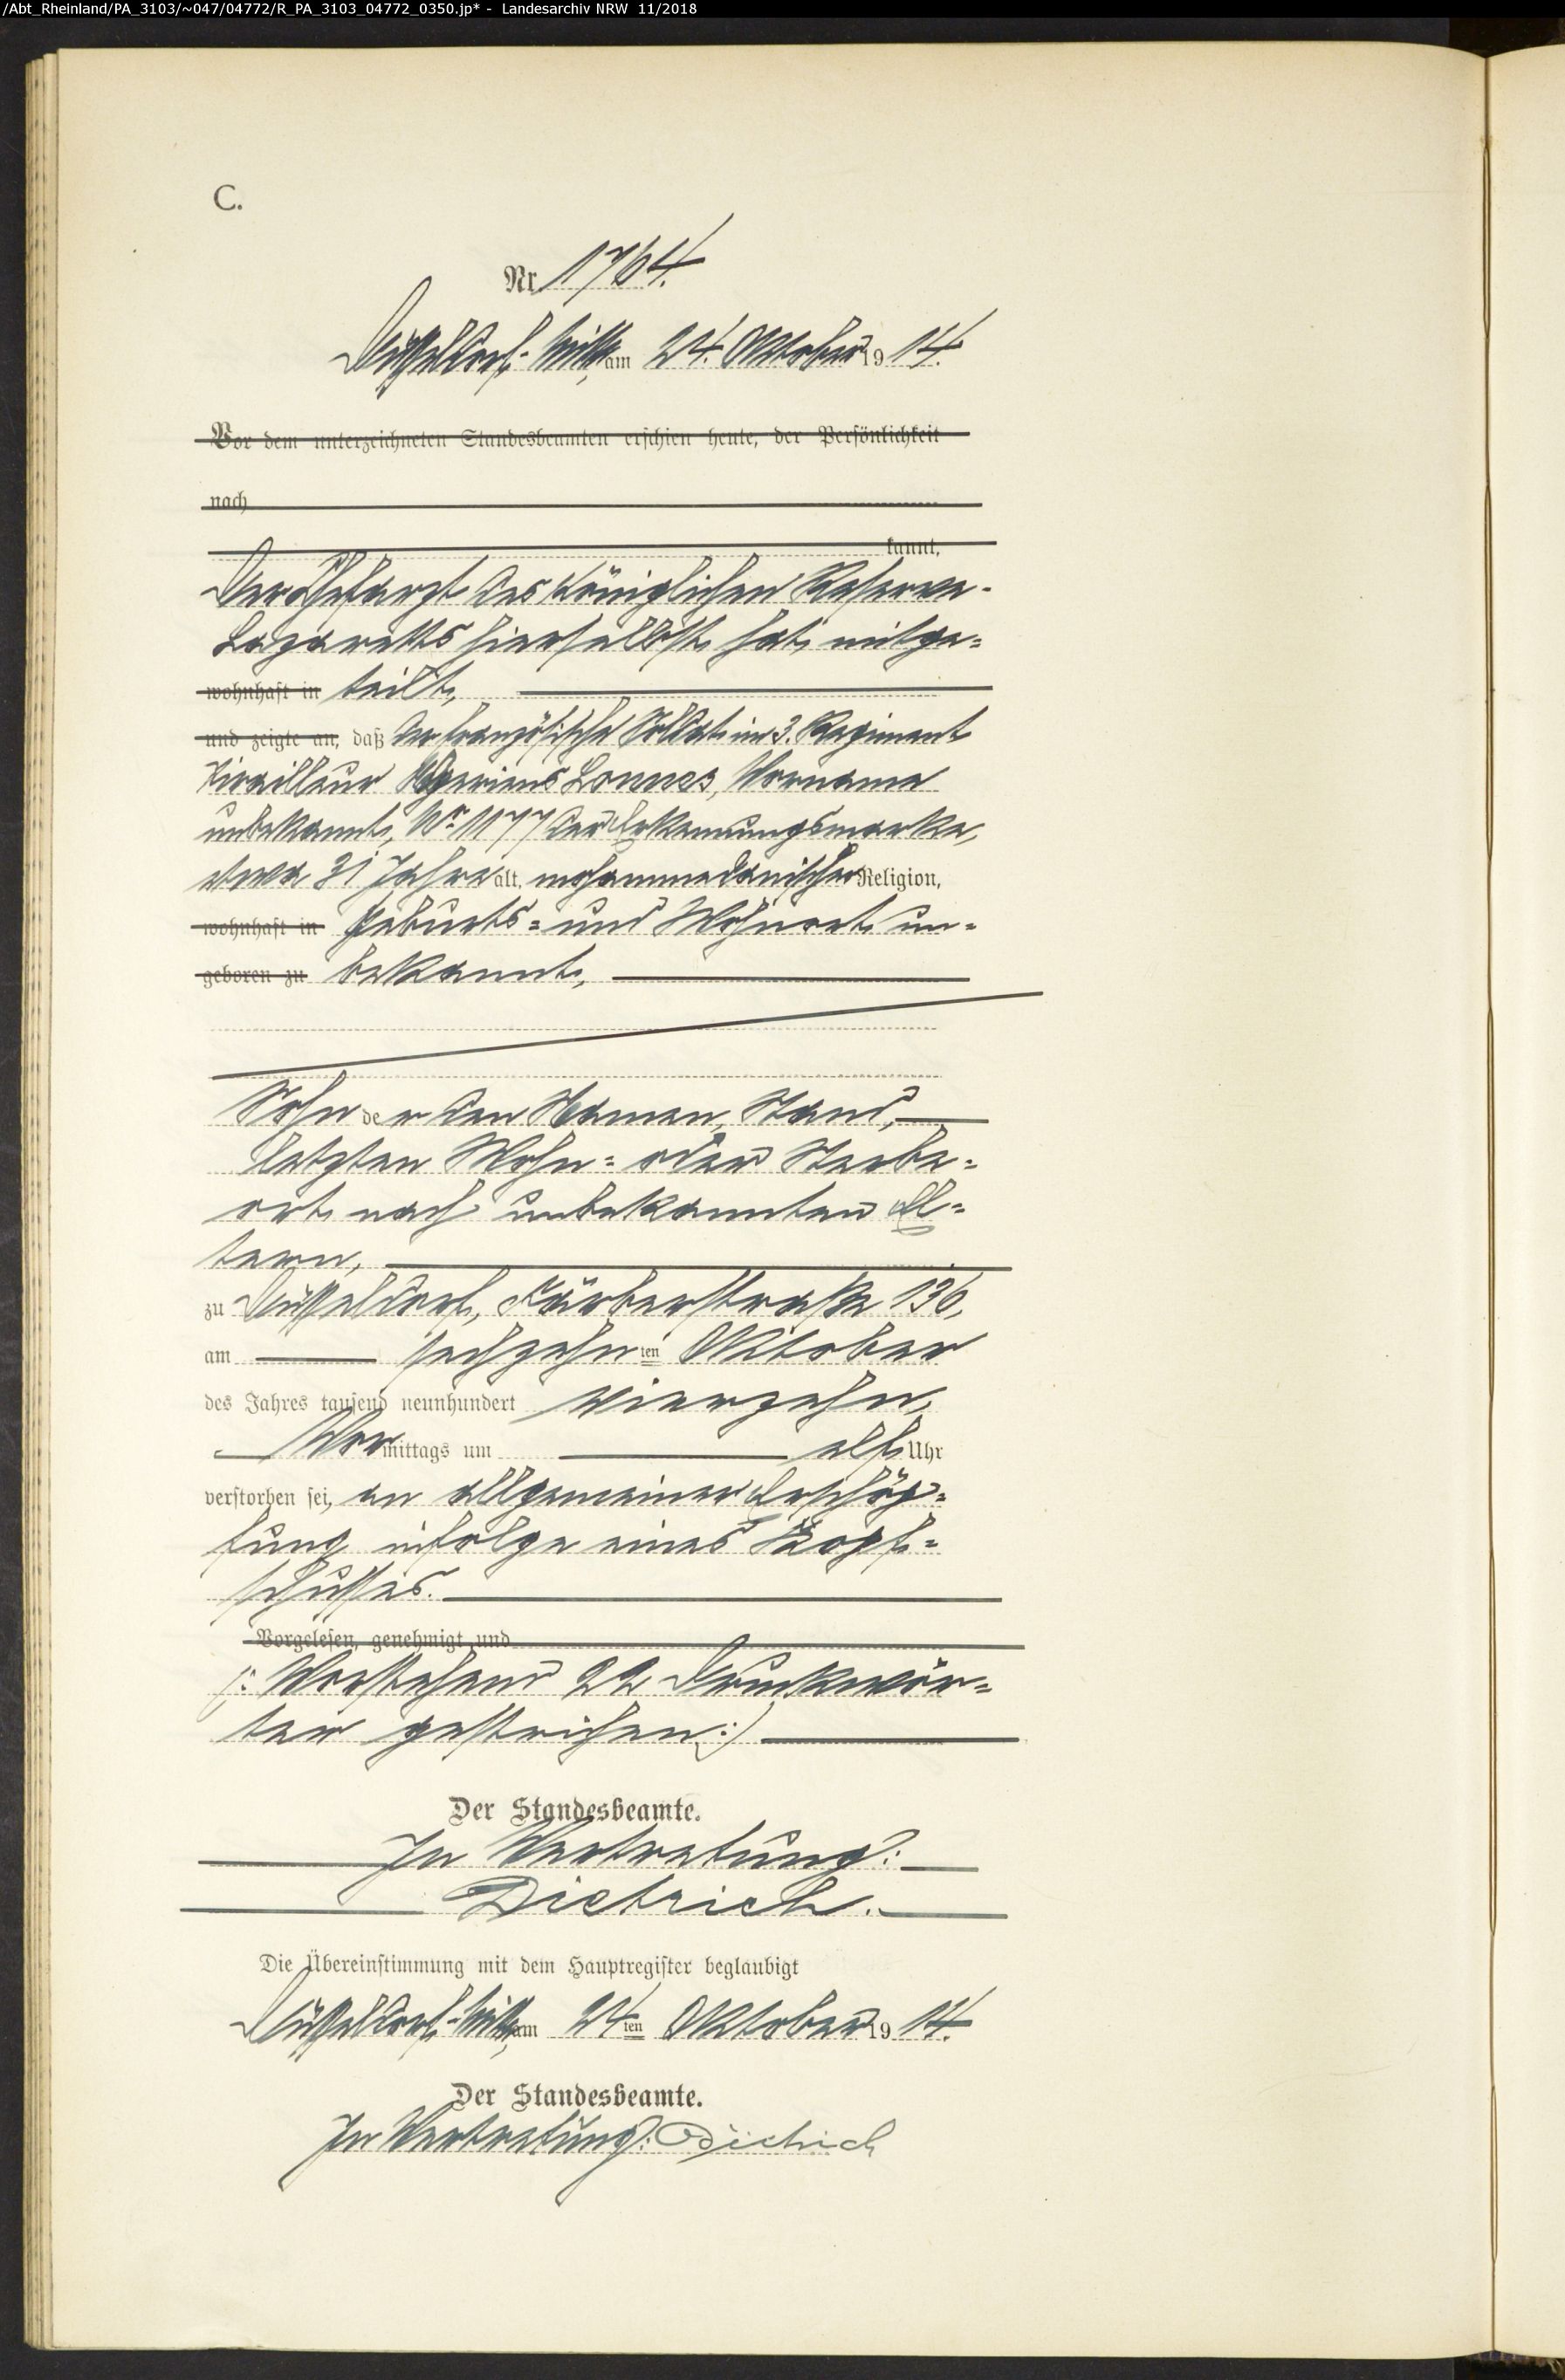 /Abt_Rheinland/PA_3103/~047/04772/R_PA_3103_04772_0350.jp* - Landesarchiv NRW 11/2018
C.
Nr. 1764.
Düsseldorf-Mitte, am 24. Oktober 1914.
Vor dem unterzeichneten Standesbeamten erschien heute, der Persönlichkeit
nach
kannt,
Der Chefarzt des Königlichen Reserve-
Lazaretts hierselbst hat mitge=
wohnhaft in teilt,
und zeigte an, daß der französische Soldat im 3. Regiment
Tirailleur Algeriens Lonnes, Vorname
unbekannt, Nr. 1177 der Erkennungsmarke,
etwa 31 Jahre alt, mohammedanischer Religion,
wohnhaft in Geburts= und Wohnort un=
geboren zu bekannt,
Sohn der dem Namen, Stand,
letzten Wohn= oder Sterbe=
ort nach unbekannten El=
tern,
zu Düsseldorf, Färberstraße 136,
am sechzehnten Oktober
des Jahres tausend neunhundert vierzehn,
Vormittags um elf Uhr
verstorben sei, an allgemeiner Erschöp=
fung infolge eines Kopf=
schusses.
Vorgelesen, genehmigt und
(: Vorstehend 22 Druckwör=
ter gestrichen :)
Der Standesbeamte.
In Vertretung:
Dietrich.
Die Übereinstimmung mit dem Hauptregister beglaubigt
Düsseldorf-Mitte, am 24ten Oktober 1914.
Der Standesbeamte.
In Vertretung: Dietrich